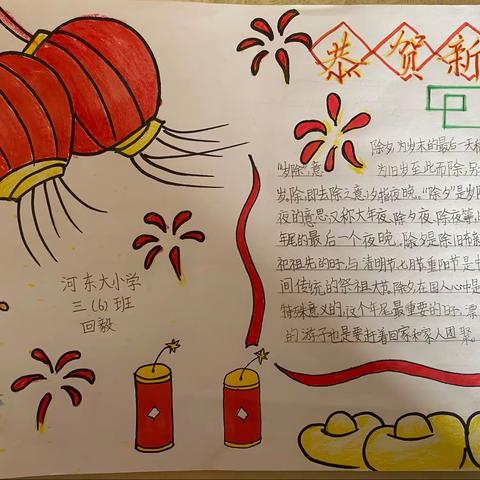 恭贺新
除夕为岁末的最后一天
"岁除",意 为旧岁至此而除,另
岁除,即去除之意;夕指夜晚。"除夕"是岁
夜的意思,又称大年夜、除夕夜、除夜等,
年尾的最后一个夜晚。除夕是除旧布新
祀祖先的日子,与清明节、七月半、重阳节是
间传统的祭祖大节。除夕在国人心中是
特殊意义的,这个年尾最重要的日子,漂
的游子也是要赶着回家和家人团聚。
河东大小学
三(6)班
回毅